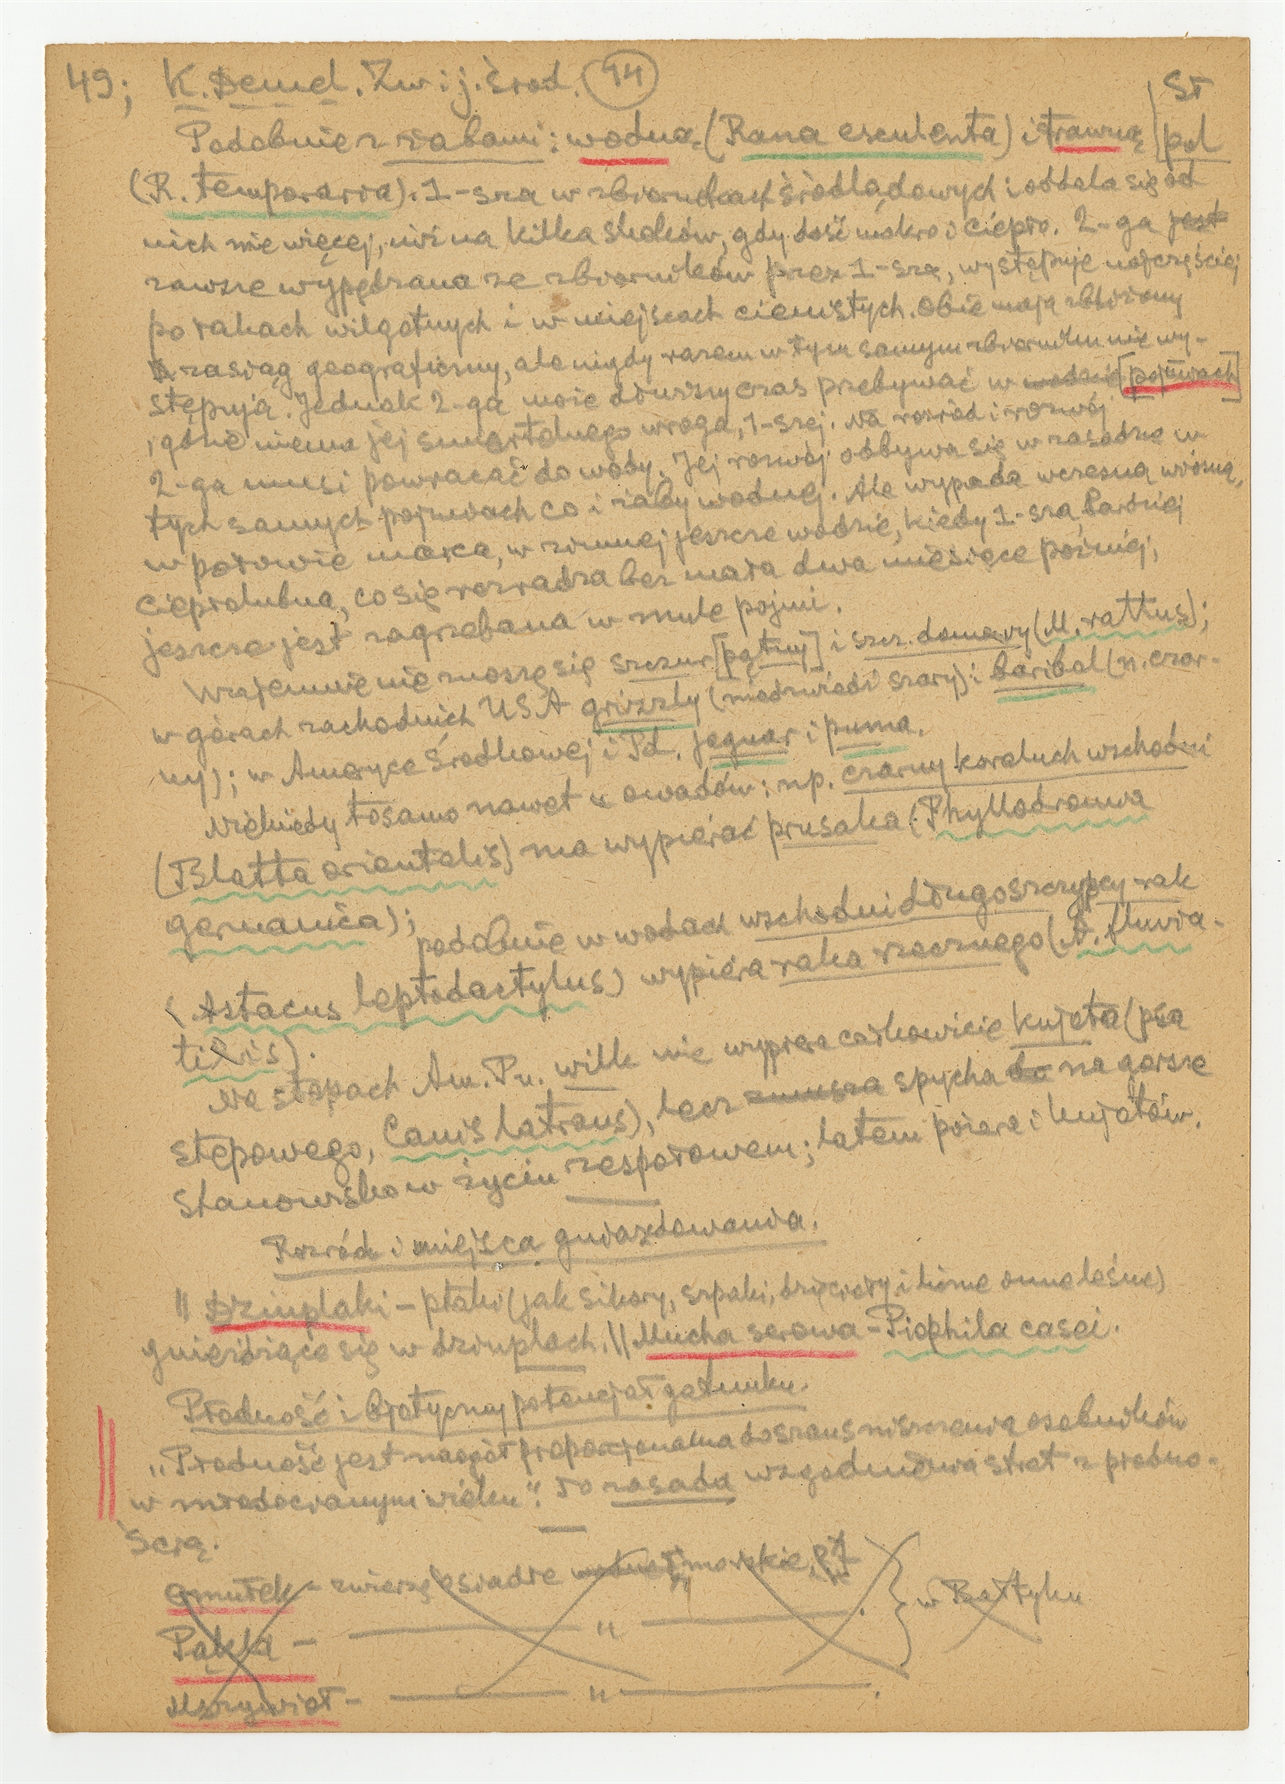 49; K. Demel. Zw. i j. środ. 94
St
Podobnie z żabami: wodną (Rana esculenta) i trawną
pd
(R. temporaria). 1-sza w zbiornikach śródlądowych i oddala się od
nich nie więcej, niż na kilka skoków, gdy dość mokro i ciepło. 2-ga jest
zawsze wypędzana ze zbiorników przez 1-szą, występuje najczęściej
po łąkach wilgotnych i w miejscach cienistych. Obie mają zbliżony
zasiąg geograficzny, ale nigdy razem w tym samym zbiorniku nie wy-
stępują. Jednak 2-ga może dłuższy czas przebywać w wodzie [pojmach]
, gdzie niema jej śmiertelnego wroga, 1-szej. Na rozród i rozwój
2-ga musi powracać do wody. Jej rozwój odbywa się w zasadzie w
tych samych pojmach co i żaby wodnej. Ale wypada wczesną wiosną,
w połowie marca, w zimnej jeszcze wodzie, kiedy 1-sza, bardziej
ciepłolubna, co się rozradza bez mała dwa miesiące później,
jeszcze jest zagrzebana w mule pojmi.
Wzajemnie nie znoszą się szczur [pątny] i szcz. domowy (M. rattus);
w górach zachodnich USA grizzly (niedźwiedź szary) i baribal (n. czar-
ny); w Ameryce Środkowej i Pd. jaguar i puma.
Niekiedy tosamo nawet u owadów: np. czarny karaluch wschodni
(Blatta orientalis) ma wypierać prusaka (Phyllodromia
germanica); podobnie w wodach wschodni długoszczypcy rak
(Astacus leptodactylus) wypiera raka rzecznego (A. fluvia-
tilis).
Na stepach Am. Pn. wilk nie wypiera całkowicie kujota (psa
stepowego, Canis latrans), lecz zmusza spycha do na gorsze
stanowisko w życiu zespołowem; latem pożera i kujotów.
Rozród i miejsca gniazdowania.
|| Dziuplaki - ptaki (jak sikory, szpaki, dzięcioły i liczne inne leśne)
gnieżdżące się w dziuplach. || Mucha serowa - Piophila casei.
Płodność i bjotyczny potencjał gatunku.
"Płodność jest naogół proporcjonalna do szans niszczenia osobników
w młodocianym wieku". To zasada wzgodnienia strat z płodno-
ścią.
Omułek - zwierzę osiadłe wodne morskie,
} w Bałtyku
Pąkla - "
Mszywioł - " .